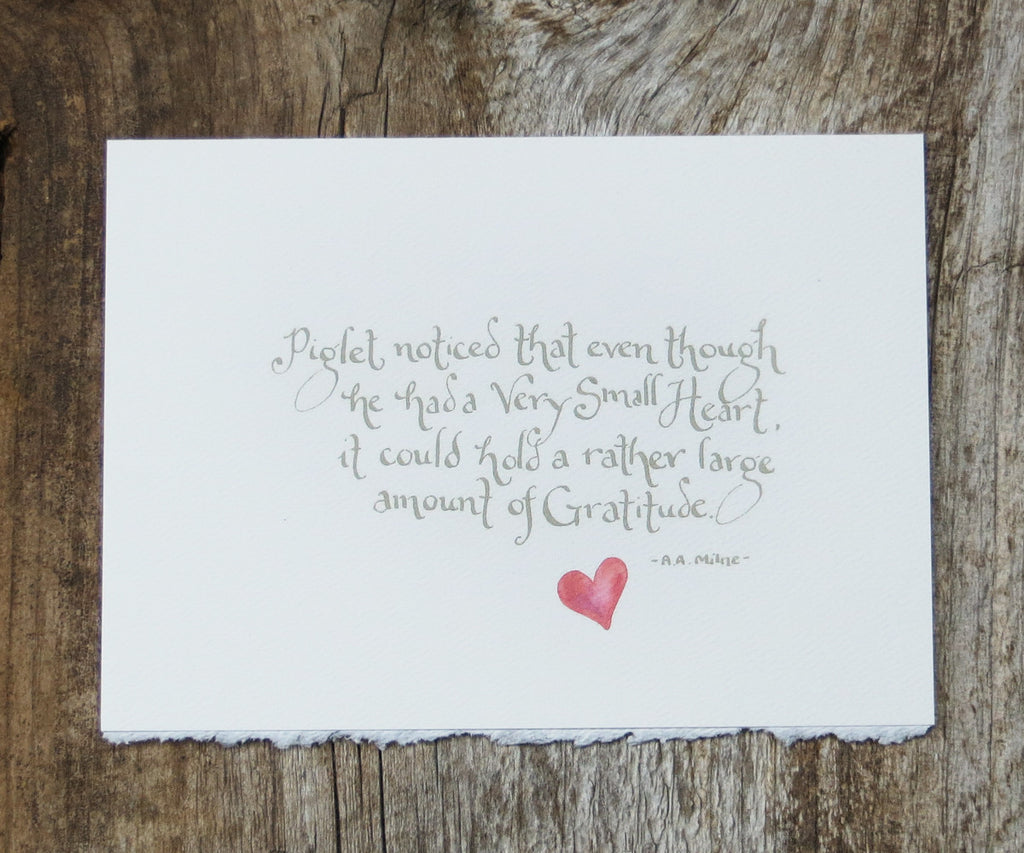 Piglet noticed that even though
he had a Very Small Heart,
it could hold a rather large
amount of Gratitude.
-A.A. Milne-